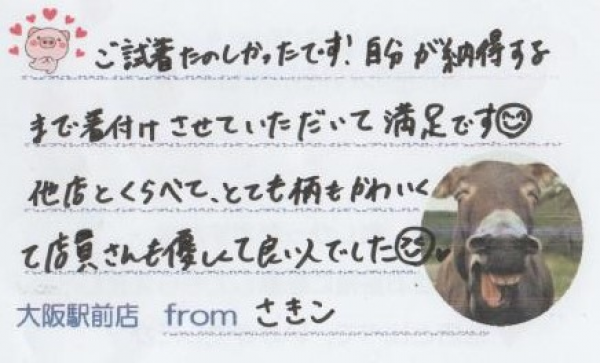 ご試着たのしかったです!自分が納得する
まで着付けさせていただいて満足です
他店とくらべて、とても柄もかわいく
て店員さんも優しくて良い人でした
大阪駅前店 from さきン